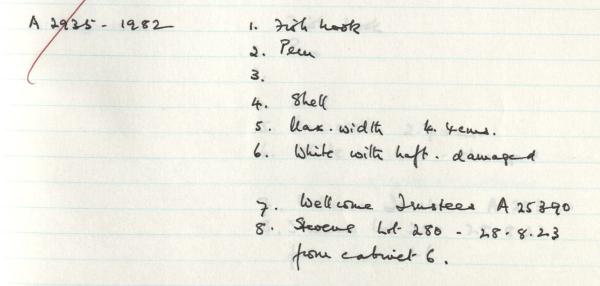 A 2935 - 1982 1. Fish hook
2. Peru
3.
4. Shell
5. Max. width 4.4cms.
6. White with haft. damaged
7. Wellcome Trustees A 25390
8. Stevens Lot 280 - 28.8.23
from cabinet 6.